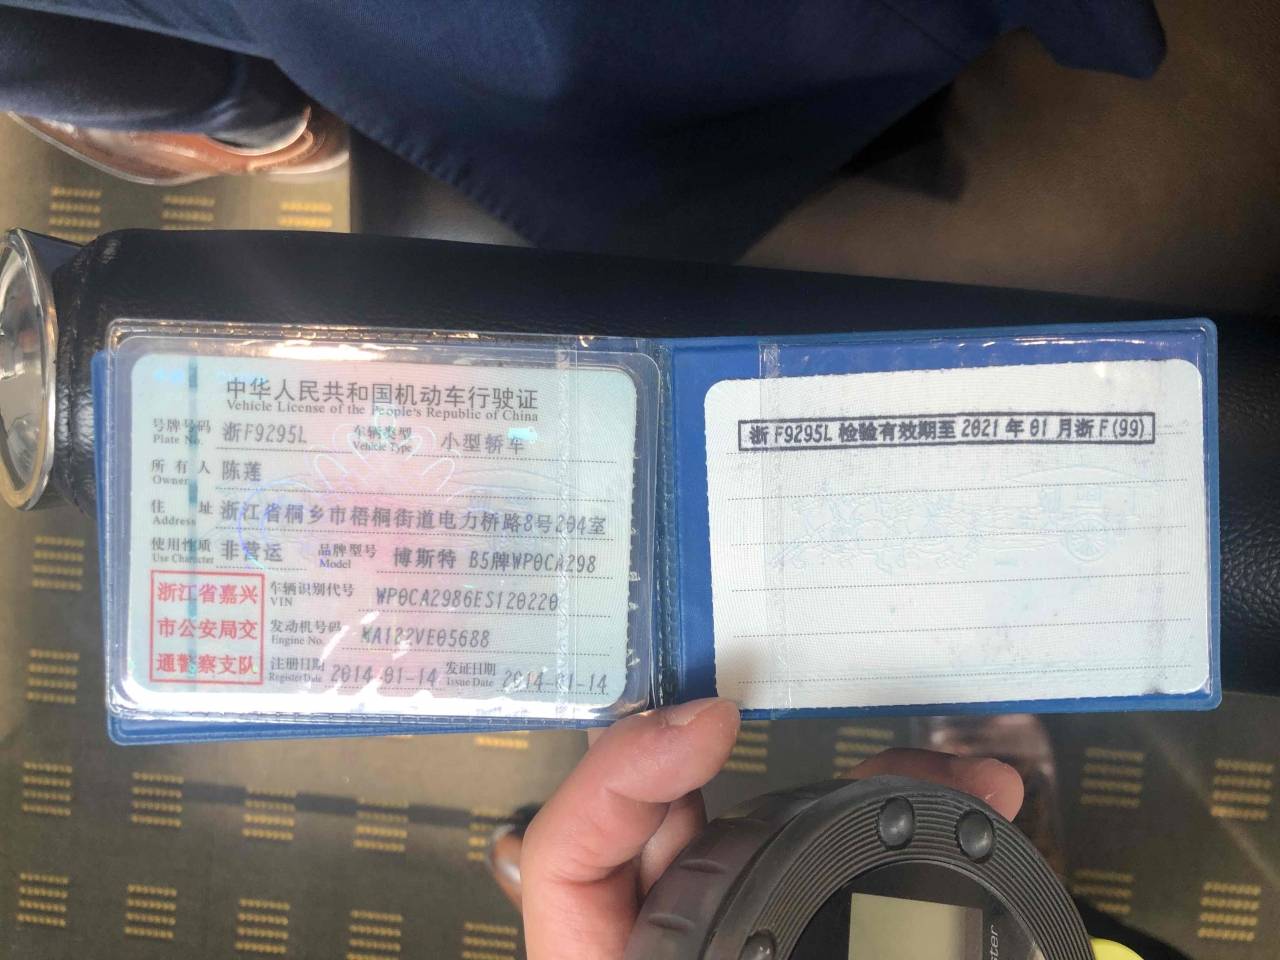 中华人民共和国机动车行驶证
Vehicle License of the People's Republic of China
号牌号码 浙F9295L 车辆类型 小型轿车
Plate No. Vehicle Type
所有人 陈莲
Owner
住址 浙江省桐乡市梧桐街道电力桥路8号204室
Address
使用性质 非营运 品牌型号 博斯特 B5牌WP0CA298
Use Character Model
浙江省嘉兴
市公安局交
通警察支队
车辆识别代号 WP0CA2986ES120220
VIN
发动机号码 MA122VE05688
Engine No.
注册日期 2014-01-14 发证日期 2014-01-14
Register Date Issue Date
浙F9295L 检验有效期至2021年01月浙F(99)
ster